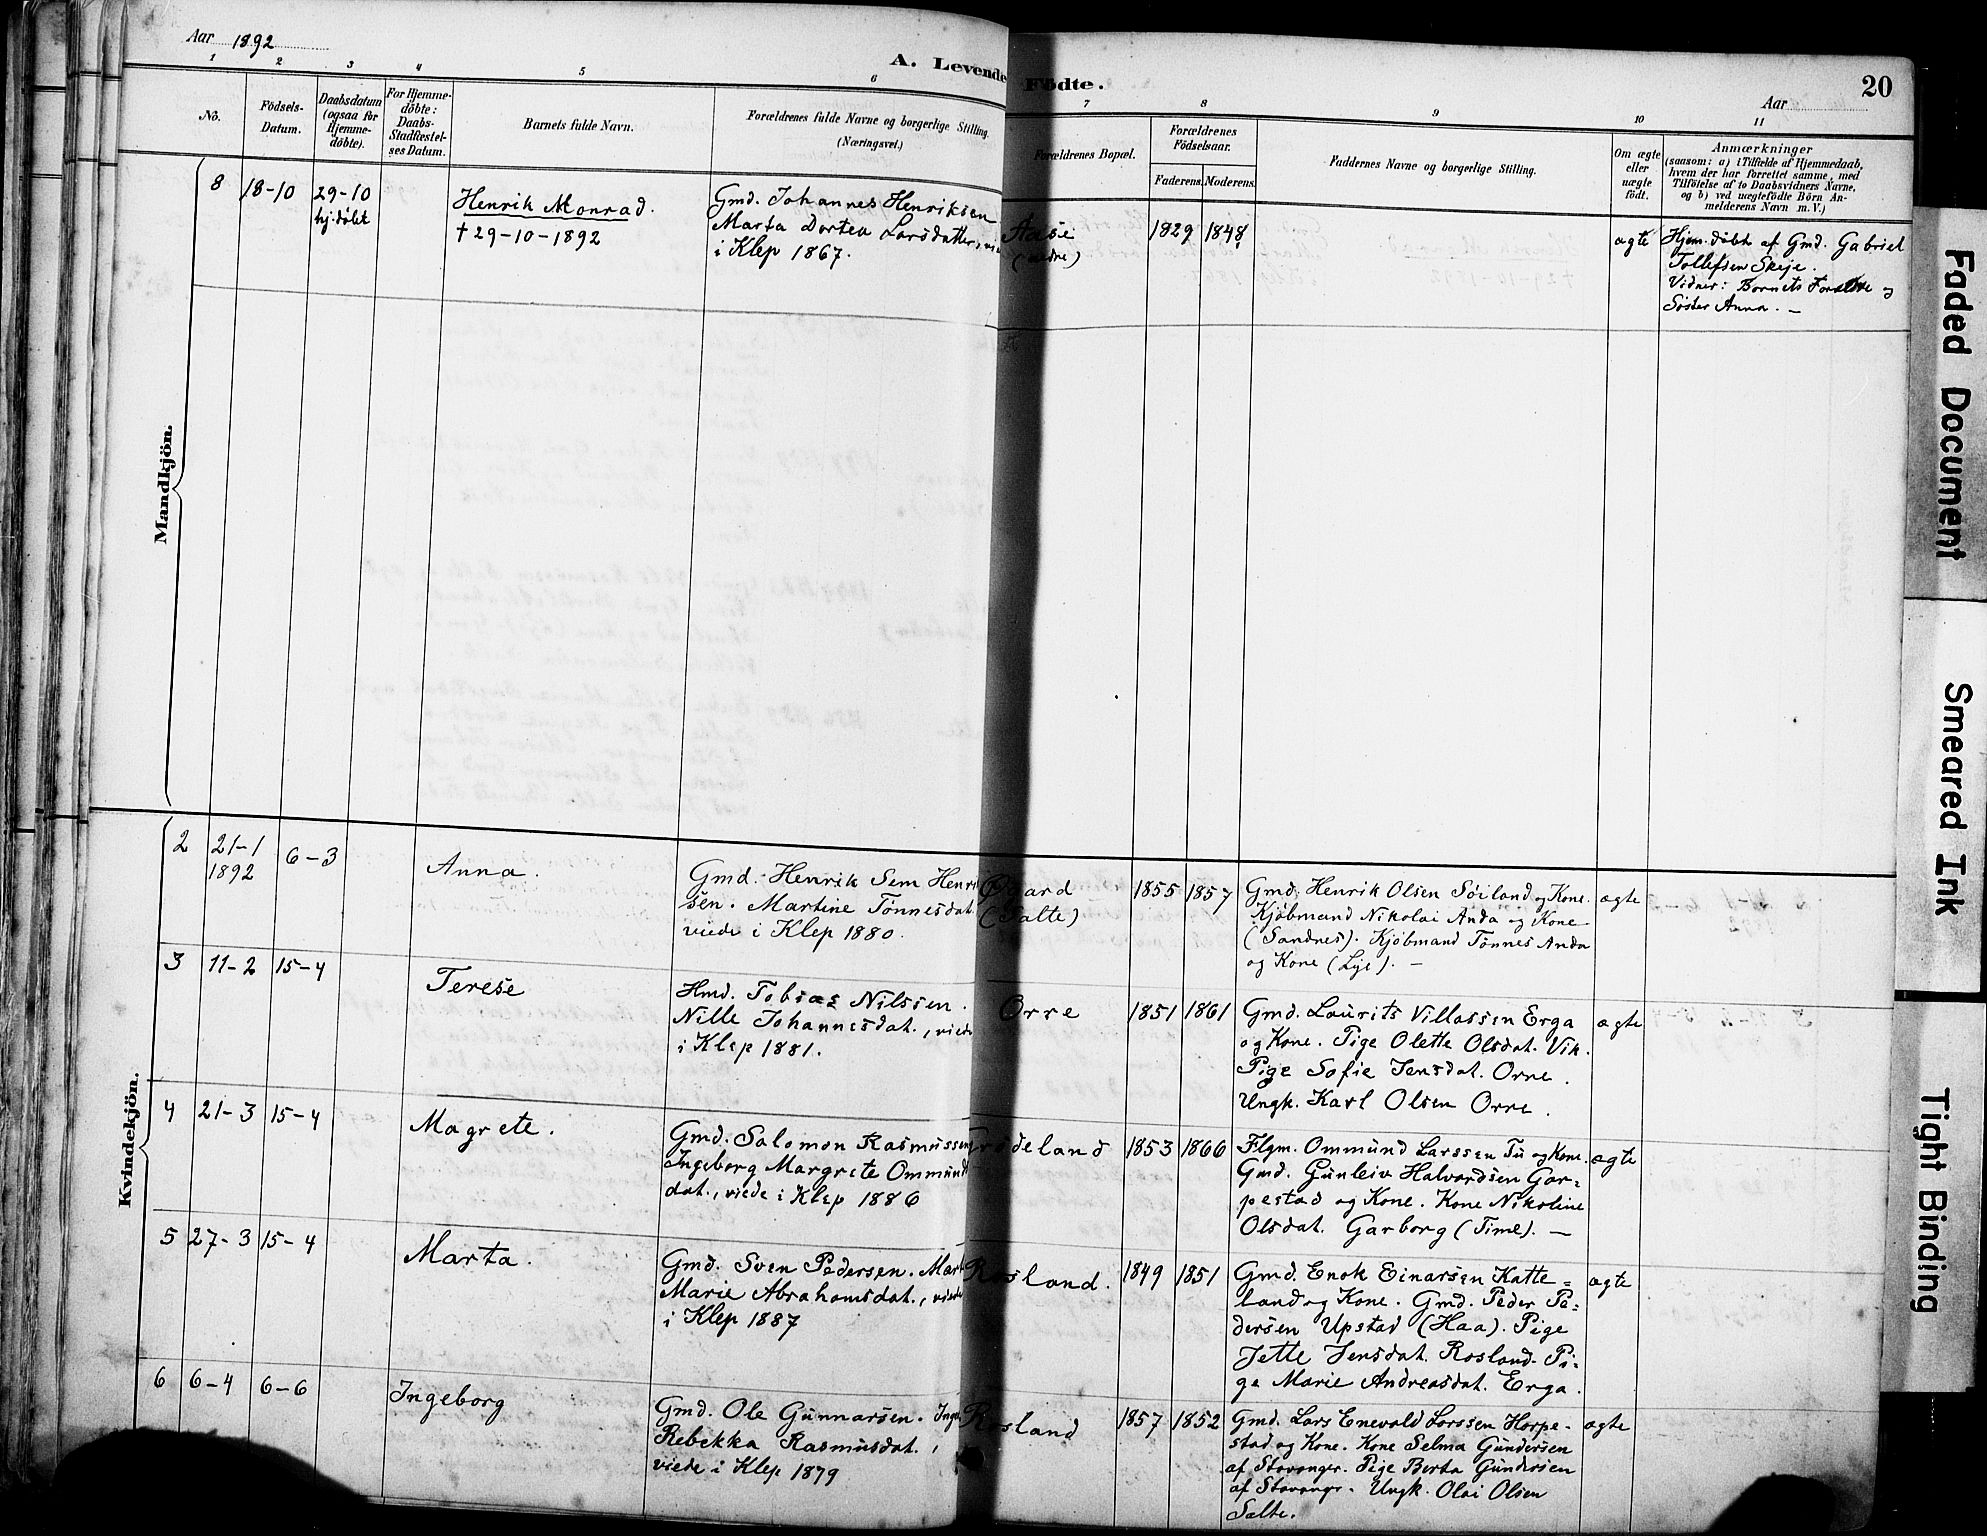 Aar 1892
A. Levende Födte.
20
Aar
1 2 3 4 5 6 7 8 9 10 11
No.
Födsels-
Datum.
Daabsdatum
(ogsaa for
Hjemme-
döbte).
For Hjemme-
döbte:
Daabs-
Stadfæstel-
ses Datum.
Barnets fulde Navn.
Forældrenes fulde Navne og borgerlige Stilling.
(Næringsvei.)
Forældrenes Bopæl.
Forældrenes
Födselsaar.
Faderens. Moderens.
Faddernes Navne og borgerlige Stilling.
Om ægte
eller
uægte
födt.
Anmærkninger
(saasom: a) i Tilfælde af Hjemmedaab,
hvem der har forrettet samme, med
Tilföielse af to Daabsvidners Navne,
og b) ved uægtefödte Börn An-
melderens Navn m. V.)
Mandkjön.
8 18-10 29-10
hj. døbt
Henrik Monrad.
† 29-10-1892
Gmd. Johannes Henriksen
Marta Dortea Larsdatter, vie
i Klep 1867.
Aase
1829 1848
ægte
Hjem. døbt af Gmd. Gabriel
Tollefsen Skeje.
Vidner: Barnets Forældre og
Søster Anna. —
Kvindekjön.
2 21-1
1892
6-3
Anna.
Gmd. Henrik Sem Henri
sen. Martine Tønnesdat.
viede i Klep 1880.
(Salte)
1855 1857
Gmd. Henrik Olsen Søiland og Kone.
Kjøbmand Nikolai Anda og Kone
(Sandnes). Kjøbmand Tønnes Anda
og Kone (Lye). —
ægte
3 11-2 15-4
Terese
Hmd. Tobias Nilssen.
Nille Johannesdat., viede
i Klep 1881.
Orre
1851 1861
Gmd. Laurits Villassen Erga
og Kone. Pige Olette Olsdat. Vik.
Pige Sofie Jensdat. Orre.
Ungk. Karl Olsen Orre.
ægte
4 21-3 15-4
Magrete.
Gmd. Salomon Rasmussen
Ingeborg Margrete Ommund
dat., viede i Klep 1886
Grødeland
1853 1866
Flgm. Ommund Larssen Tu og Kone.
Gmd. Gunleiv Halvardsen Gar=
pestad og Kone. Kone Nikoline
Olsdat. Garborg (Time). —
ægte
5 27-3 15-4
Marta.
Gmd. Sven Pedersen. Mart
Marie Abrahamsdat., viede
i Klep 1887
Rosland.
1849 1851
Gmd. Enok Einarsen Katte=
land og Kone. Gmd. Peder Pe=
dersen Upstad (Haa). Pige
Jette Jensdat. Rosland. Pi=
ge Marie Andreasdat. Erga.
ægte
6 6-4 6-6
Ingeborg
Gmd. Ole Gunnarsen. Inge
Rebekka Rasmusdat.,
viede i Klep 1879
Rosland
1857 1852
Gmd. Lars Enevald Larssen Horpe-
stad og Kone. Kone Selma Gundersen
af Stavanger. Pige Berta Gundersen
af Stavangr. Ungk. Olai Olsen
Salte.
ægte
Faded Document
Smeared Ink
Tight Binding